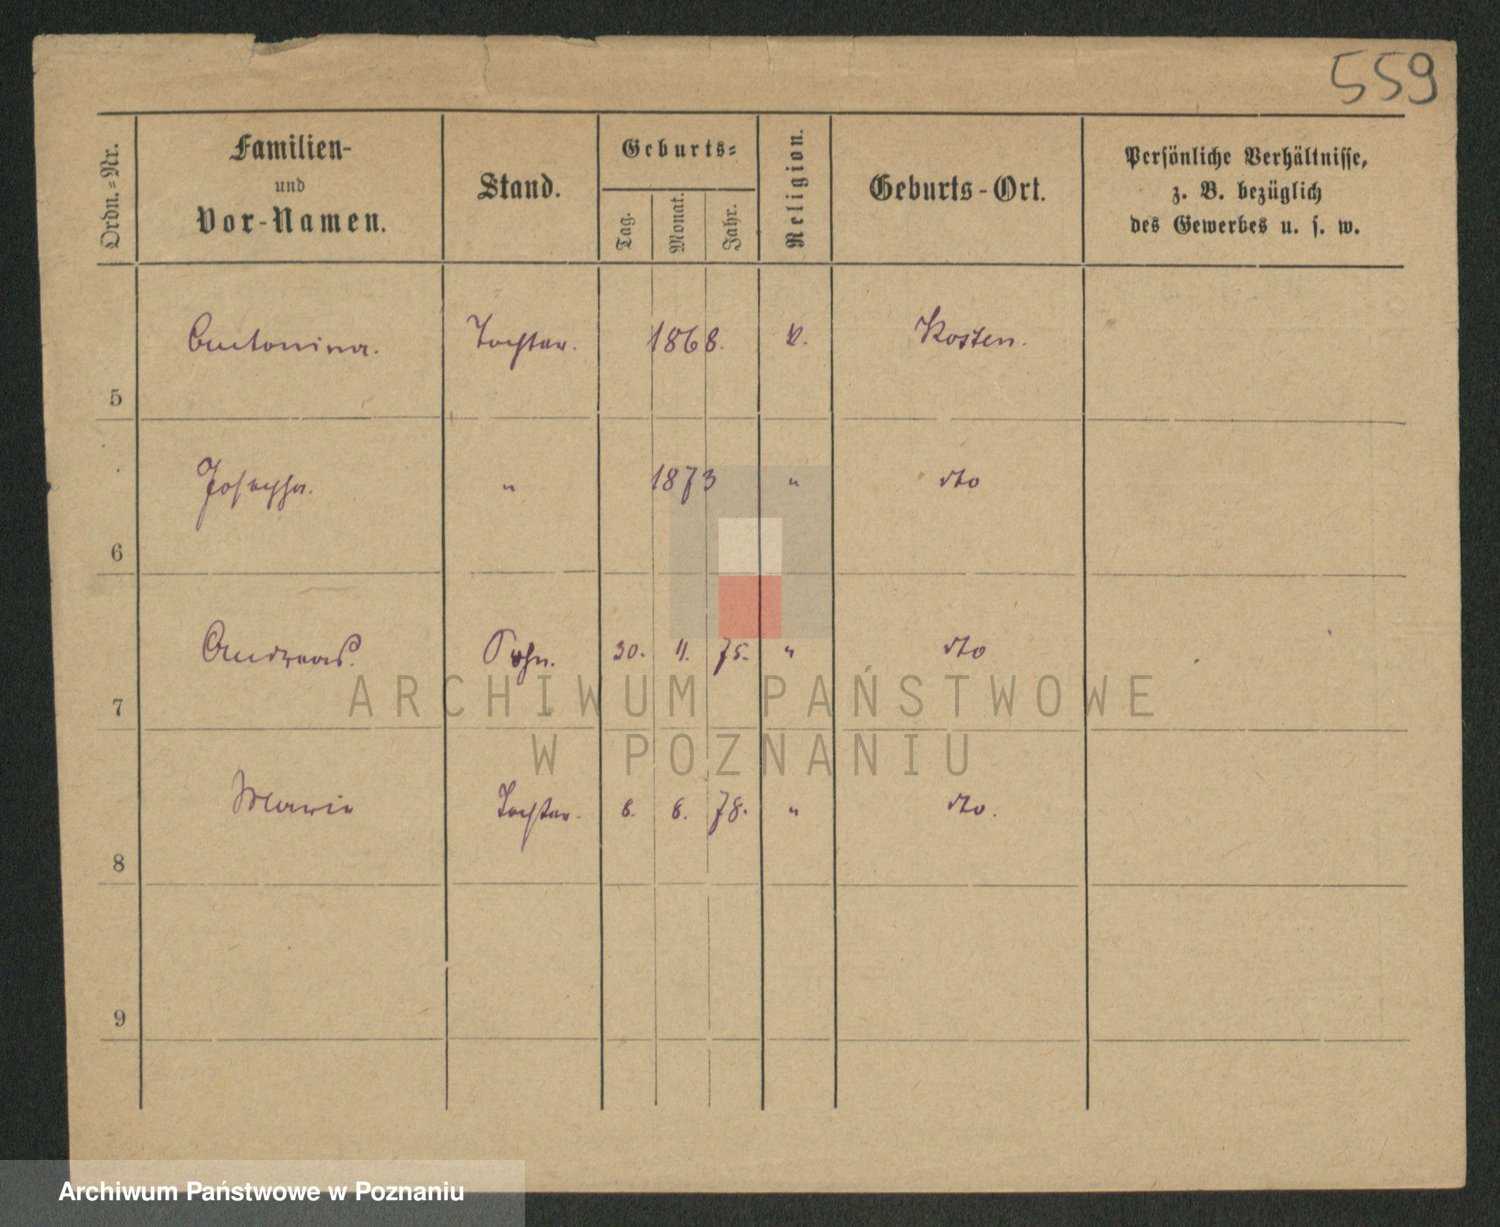 559
Ordn.=Nr.
Familien-
und
Vor-Namen.
Stand.
Geburts=
Tag.
Monat.
Jahr.
Religion.
Geburts-Ort.
Persönliche Verhältnisse,
z. B. bezüglich
des Gewerbes u. s. w.
5 Antonina. Tochter. 1868. k. Kosten.
6 Josepha. " 1873 " dto
7 Andreas. Sohn. 30. 11. 75. " dto
8 Marie Tochter. 8. 8. 78. " dto.
9
ARCHIWUM PAŃSTWOWE
W POZNANIU
Archiwum Państwowe w Poznaniu